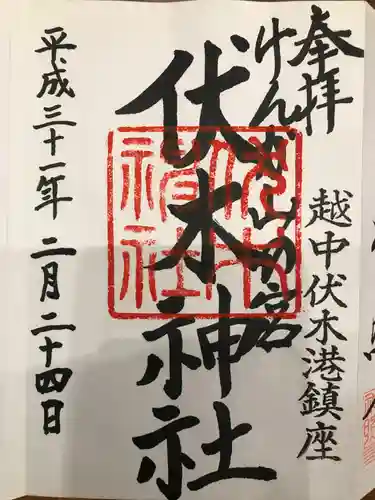 奉拝
越中伏木港鎮座
けんかやまの宮
伏木神社
平成三十一年 二月二十四日